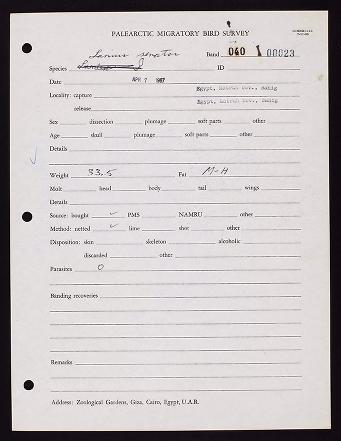 PALEARCTIC MIGRATORY BIRD SURVEY
Species Lanius senator Band 040 1 00023
ID
Date APR 7 1967
Locality: capture Egypt, Matruh Gov., Bahig
release Egypt, Matruh Gov., Bahig
Sex dissection plumage soft parts other
Age skull plumage soft parts other
Details
Weight 33.5 Fat M-H
Molt head body tail wings
Details
Source: bought ✓ PMS NAMRU other
Method: netted ✓ lime shot other
Disposition: skin skeleton alcoholic
discarded other
Parasites 0
Banding recoveries
Remarks
Address: Zoological Gardens, Giza, Cairo, Egypt, U.A.R.